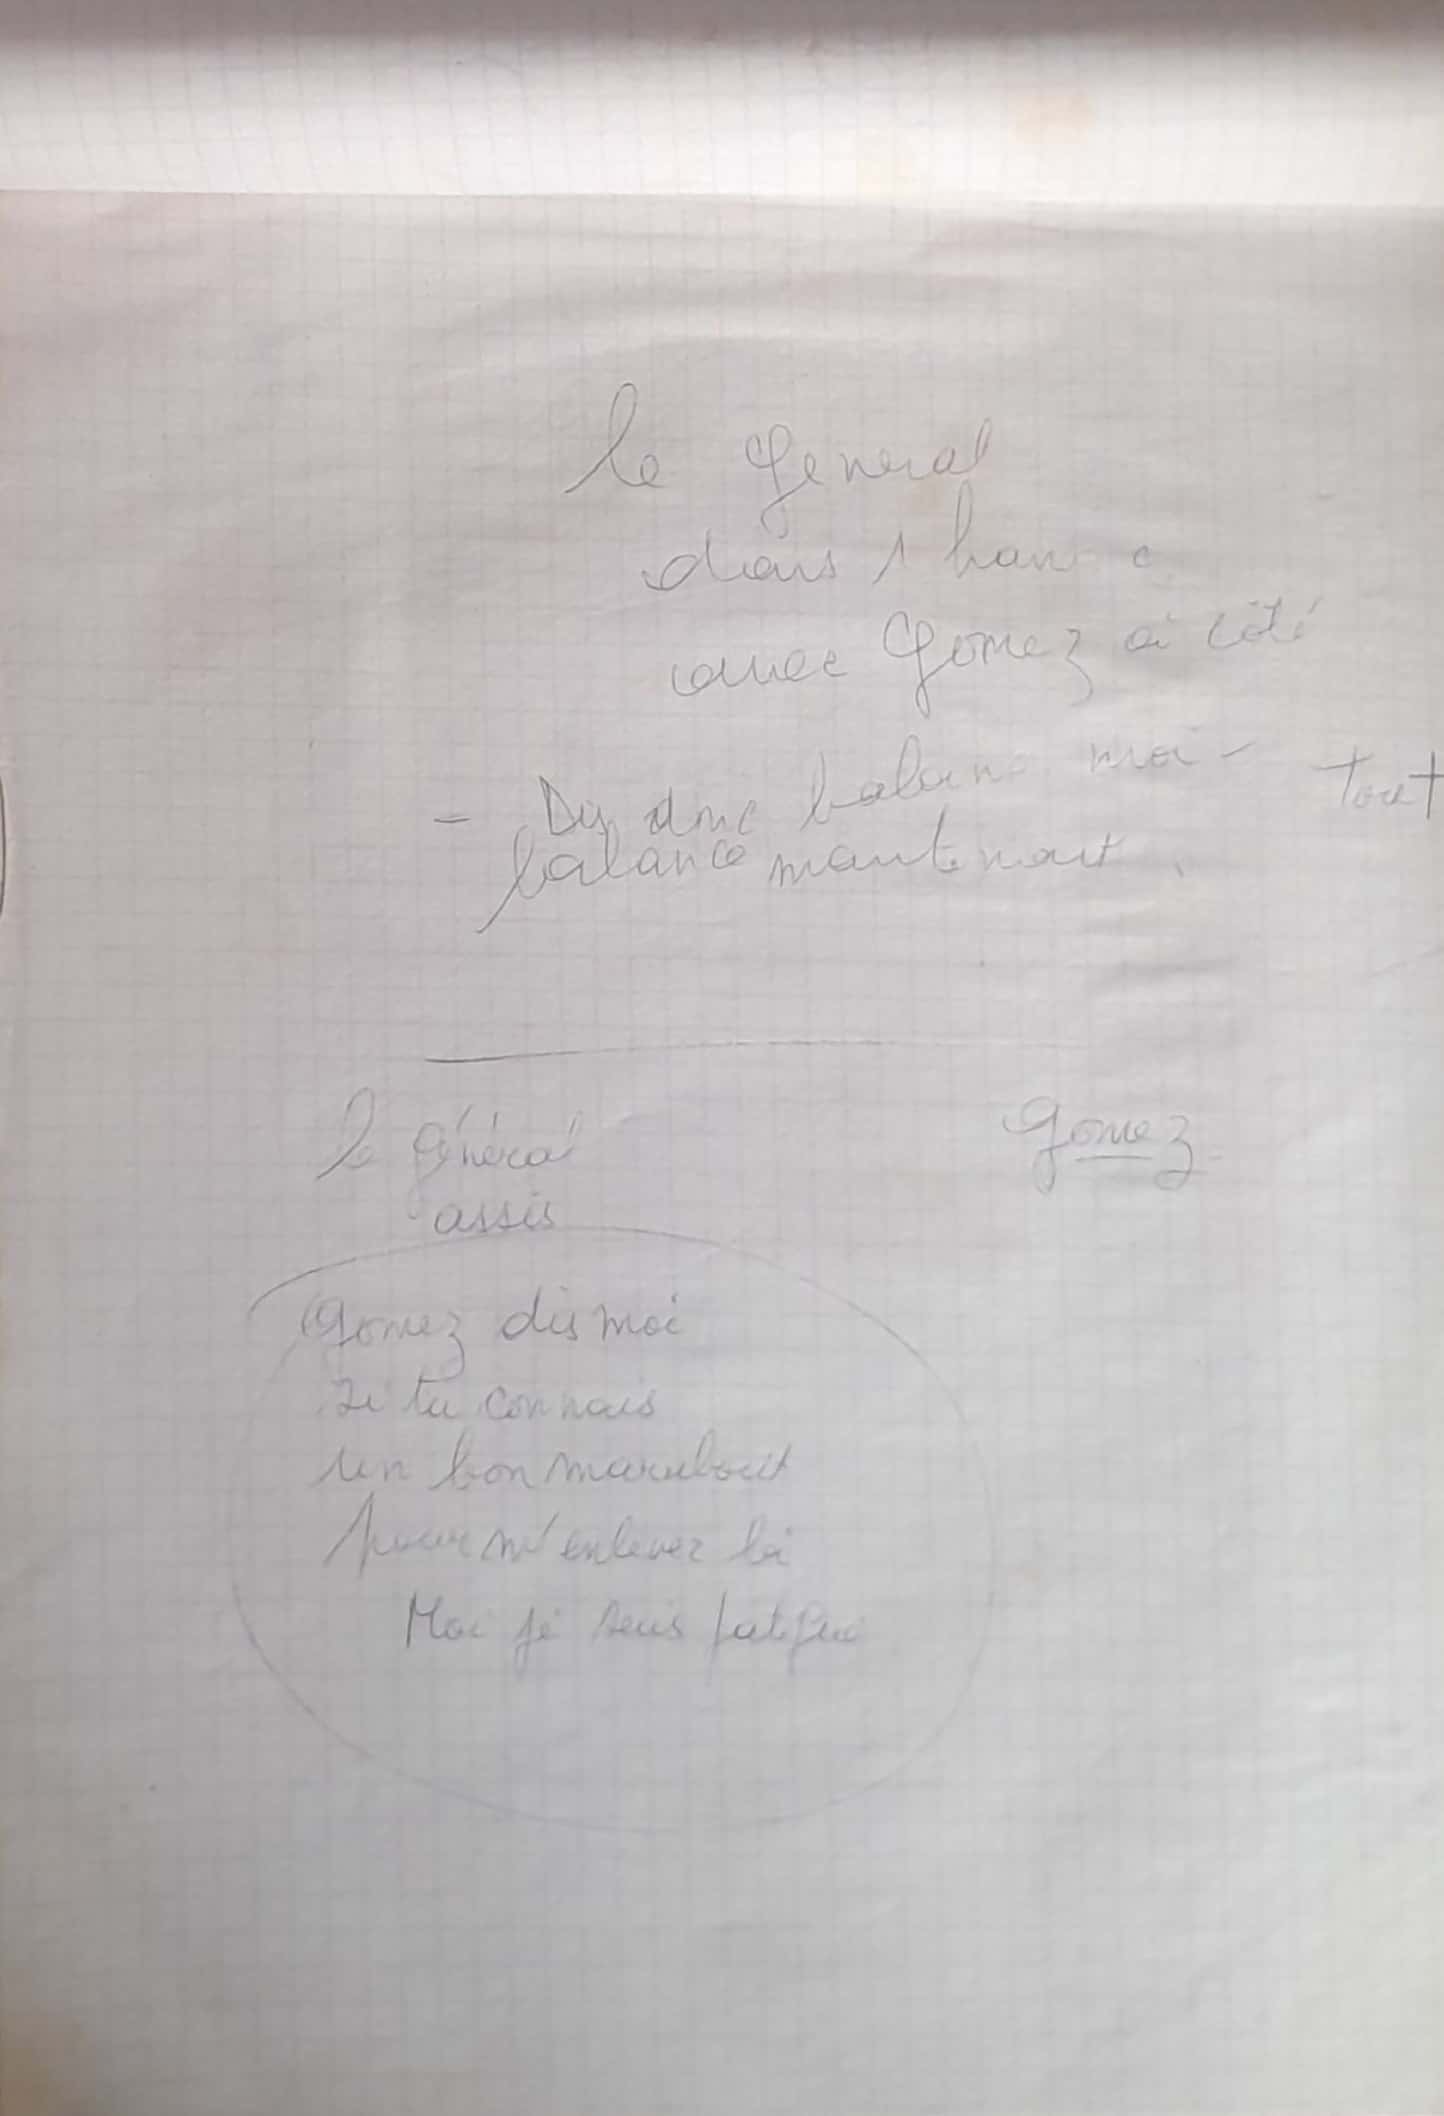 le General
dans 1
avec Gomez à côté
- Dis donc balance moi - tout
balance maintenant.
le Général Gomez
assis
Gomez dis moi
si tu connais
un bon marabout
pour m'enlever là
Moi je suis fatigué